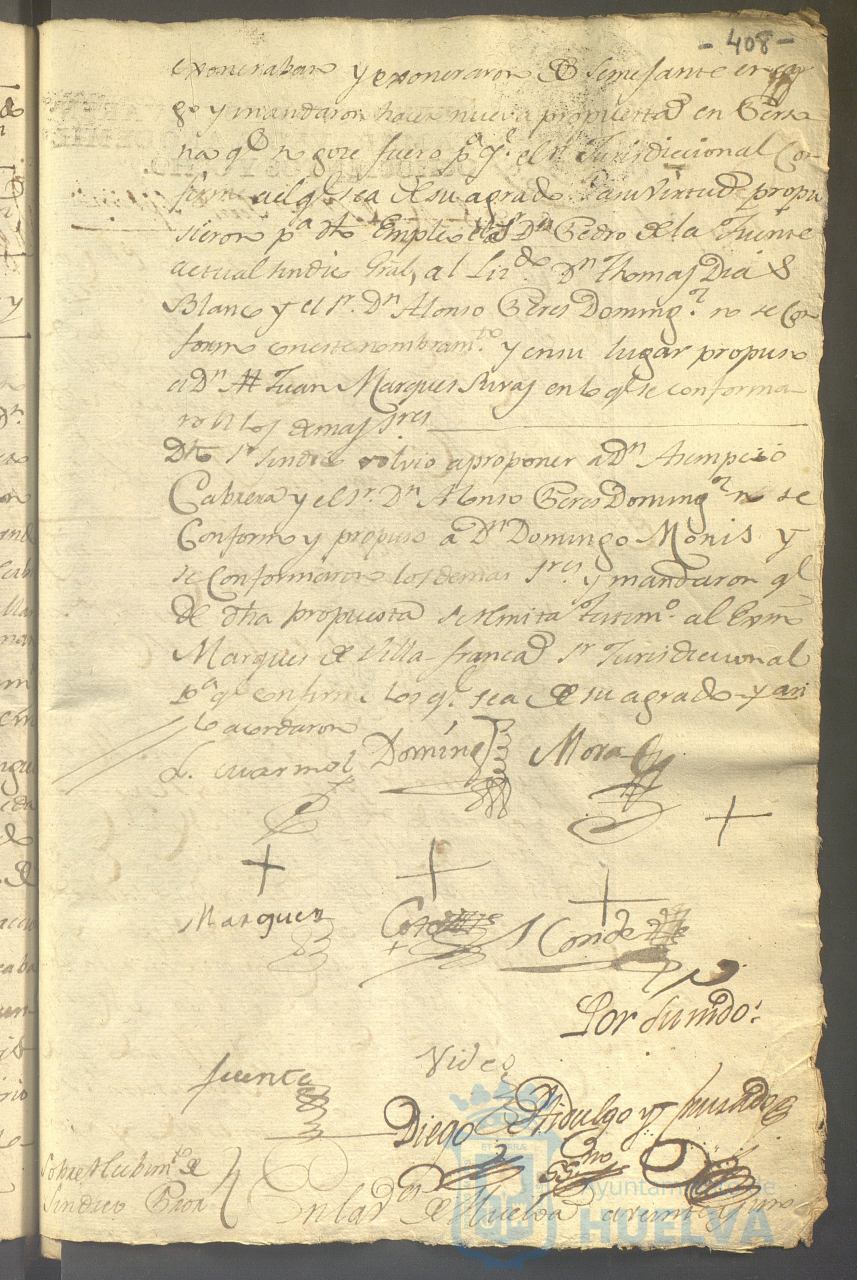 - 408 -
exoneraban y exoneraron de semejante encar
go y mandaron hacer nueva propuesta en Perso
na qe. no goze fuero pa. qe. el Sr. Jurisdiccional Con
firme el qe. sea de su agrado y en su Virtud propu
sieron pa. dho Empleo Dn. Pedro de la Fuente
actual Sindico Gral, al Lizdo. Dn. Thomas Dias
Blanco y el Sr. Dn. Alonso Peres Domingz. no se Con
formo con este nombramto. y en su lugar propuso
a Dn. Juan Marques Rivas en lo qe. se conforma
ron los demas Sres.
Dho Sr. Sindico volvio a proponer a Dn. Asempcio
Cabrera y el Sr. Dn. Alonso Peres Domingz. no se
Conformo y propuso a Dn. Domingo Monis y
se Conformaron los demas Sres. y mandaron qe.
de dha propuesta se remita testimo. al Exmo
Marques de Villa-franca Sr. Jurisdiccional
pa. qe. confirme los qe. sea de su agrado y asi
lo acordaron
Domingz
Mora
Marquez
Conde
Por su mdo.
Fuente
Vides
Diego Hidalgo y Hurtado
Sobre Recibimto. de
Sindico Pror.
En la de Huelva
Ayuntamiento de
HUELVA